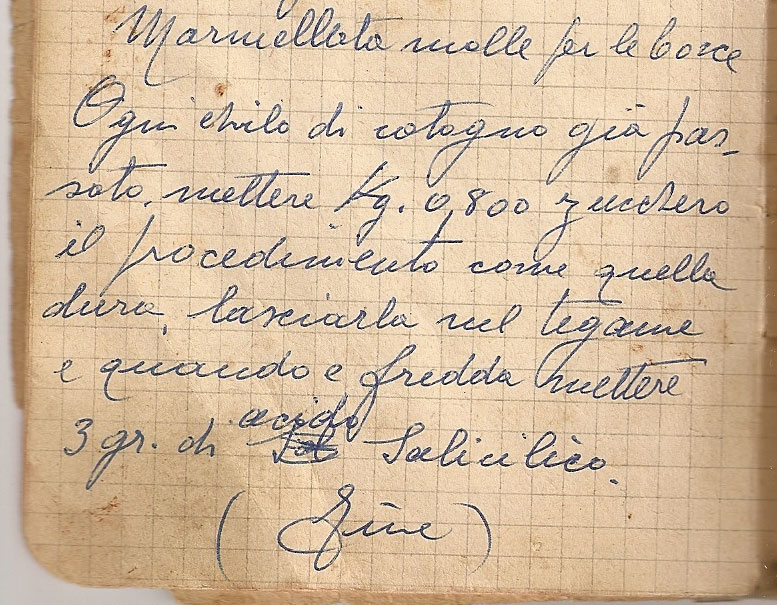 Marmellata molle per le bocce
Ogni chilo di cotogno già pas-
sato, mettere Kg. 0,800 zucchero
il procedimento come quella
dura, lasciarla nel tegame
e quando e fredda mettere
3 gr. di acido Salicilico.
(Fine)